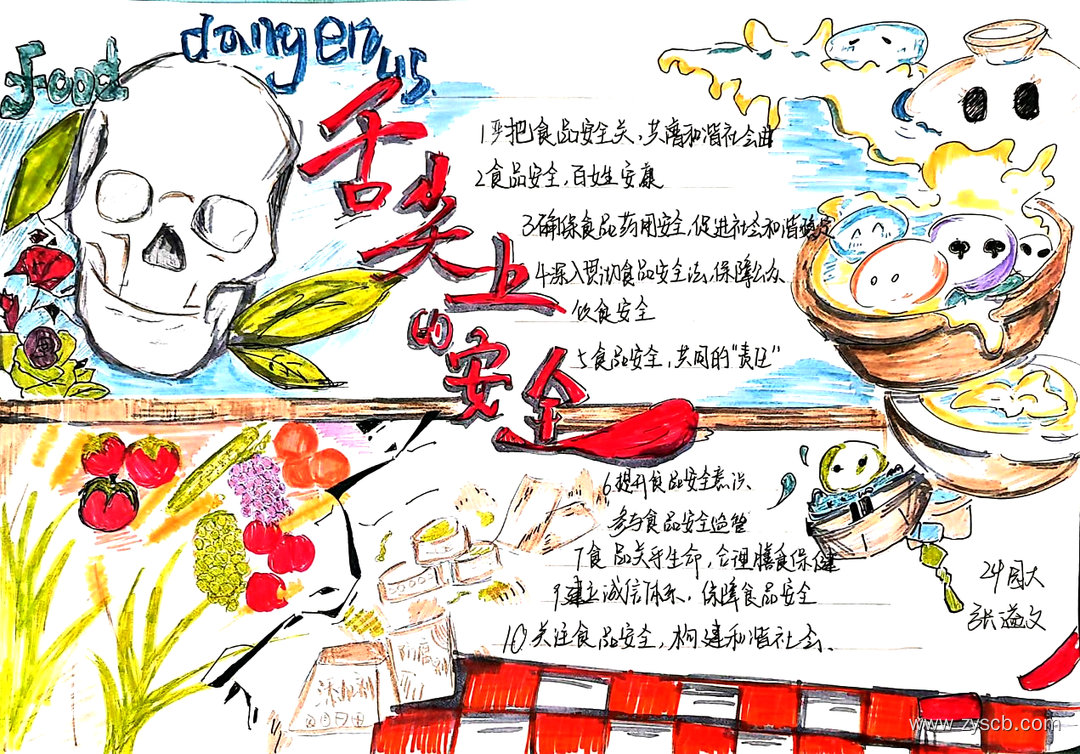 Food
dangerous.
舌尖上的安全
1严把食品安全关，共离和谐社会曲
2食品安全，百姓安康
3确保食品药用安全，促进社会和谐稳定
4深入贯彻食品安全法，保障公众
饮食安全
5食品安全，共同的"责任"
6提升食品安全意识、
参与食品安全监管
7食品关乎生命，合理膳食保健
9建立诚信体系，保障食品安全
10关注食品安全，构建和谐社会、
张益文
www.zyscb.com